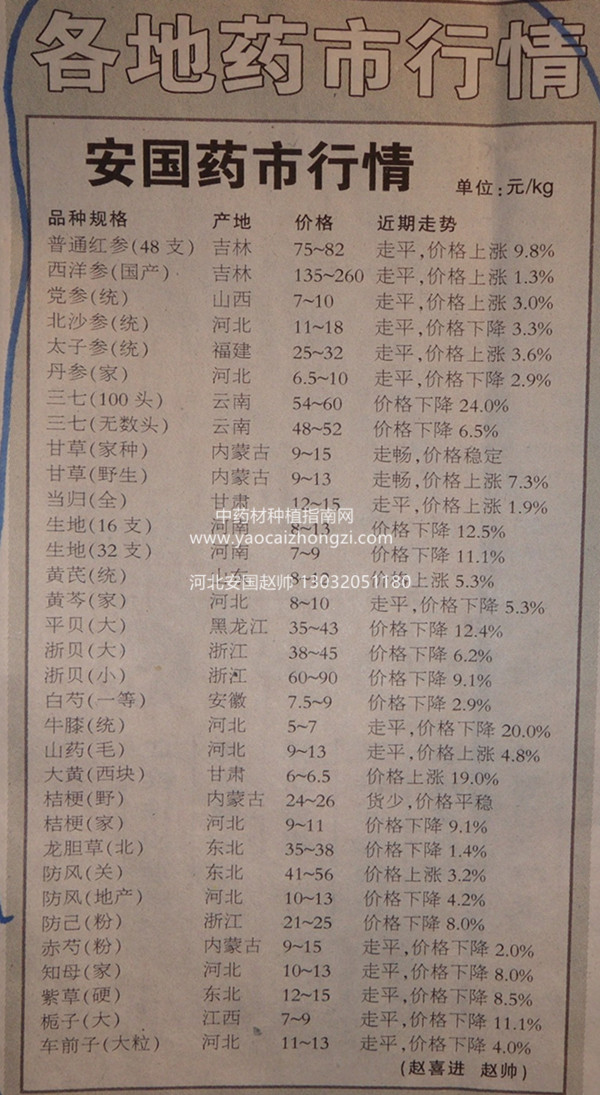 各地药市行情
安国药市行情 单位:元/kg
品种规格 产地 价格 近期走势
普通红参(48支) 吉林 75~82 走平,价格上涨9.8%
西洋参(国产) 吉林 135~260 走平,价格上涨1.3%
党参(统) 山西 7~10 走平,价格上涨3.0%
北沙参(统) 河北 11~18 走平,价格下降3.3%
太子参(统) 福建 25~32 走平,价格上涨3.6%
丹参(家) 河北 6.5~10 走平,价格下降2.9%
三七(100头) 云南 54~60 价格下降24.0%
三七(无数头) 云南 48~52 价格下降6.5%
甘草(家种) 内蒙古 9~15 走畅,价格稳定
甘草(野生) 内蒙古 9~13 走畅,价格上涨7.3%
当归(全) 甘肃 12~15 走平,价格上涨1.9%
中药材种植指南网
生地(16支) 河南 8~13 价格下降12.5%
www.yaocaizhongzi.com
生地(32支) 河南 7~9 价格下降11.1%
黄芪(统) 山东 价格上涨5.3%
河北安国赵帅 13032051180
黄芩(家) 河北 8~10 走平,价格下降5.3%
平贝(大) 黑龙江 35~43 价格下降12.4%
浙贝(大) 浙江 38~45 价格下降6.2%
浙贝(小) 浙江 60~90 价格下降9.1%
白芍(一等) 安徽 7.5~9 价格下降2.9%
牛膝(统) 河北 5~7 走平,价格下降20.0%
山药(毛) 河北 9~13 走平,价格上涨4.8%
大黄(西块) 甘肃 6~6.5 价格上涨19.0%
桔梗(野) 内蒙古 24~26 货少,价格平稳
桔梗(家) 河北 9~11 价格下降9.1%
龙胆草(北) 东北 35~38 价格下降1.4%
防风(关) 东北 41~56 价格上涨3.2%
防风(地产) 河北 10~13 价格下降4.2%
防己(粉) 浙江 21~25 价格下降8.0%
赤芍(粉) 内蒙古 9~15 走平,价格下降2.0%
知母(家) 河北 10~13 走平,价格下降8.0%
紫草(硬) 东北 12~15 走平,价格下降8.5%
栀子(大) 江西 7~9 走平,价格下降11.1%
车前子(大粒) 河北 11~13 走平,价格下降4.0%
(赵喜进 赵帅)